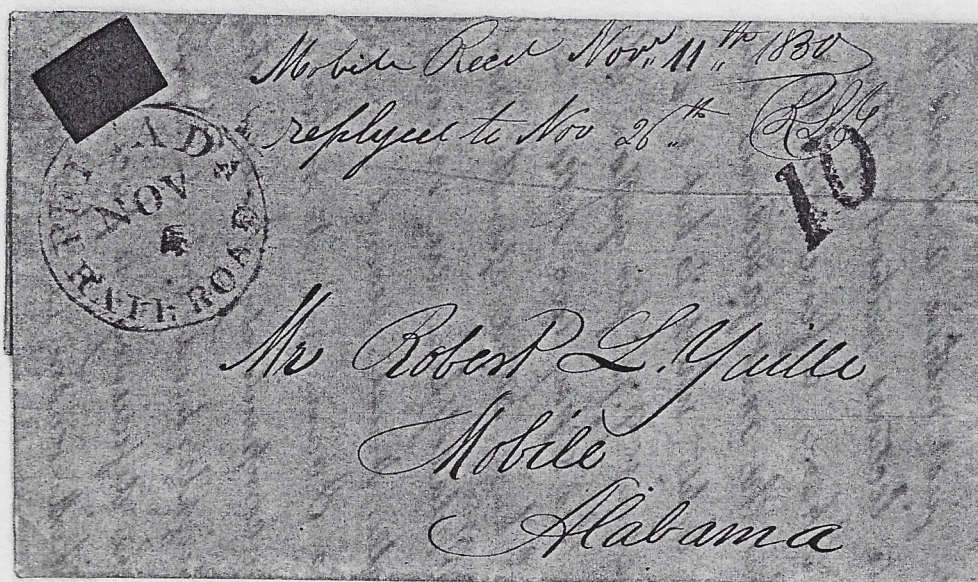 Mobile Recd Novr 11th 1850
replyed to Nov 26th RLY
PHILADA
RAILROAD
NOV
10
Mr Robert L. Yuille
Mobile
Alabama